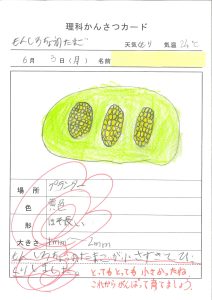 理科かんさつカード
もんしろちょうのたまご
天気 くもり 気温 26℃
6月 3日(月) 名前
場所 プランター
色 黄色
形 ほそ長い
大きさ 1mm〜2mm
もんしろちょうのたまごが小さすぎてびっ
くりしました。
とってもとっても小さかったね。
これからがんばって育てましょう。